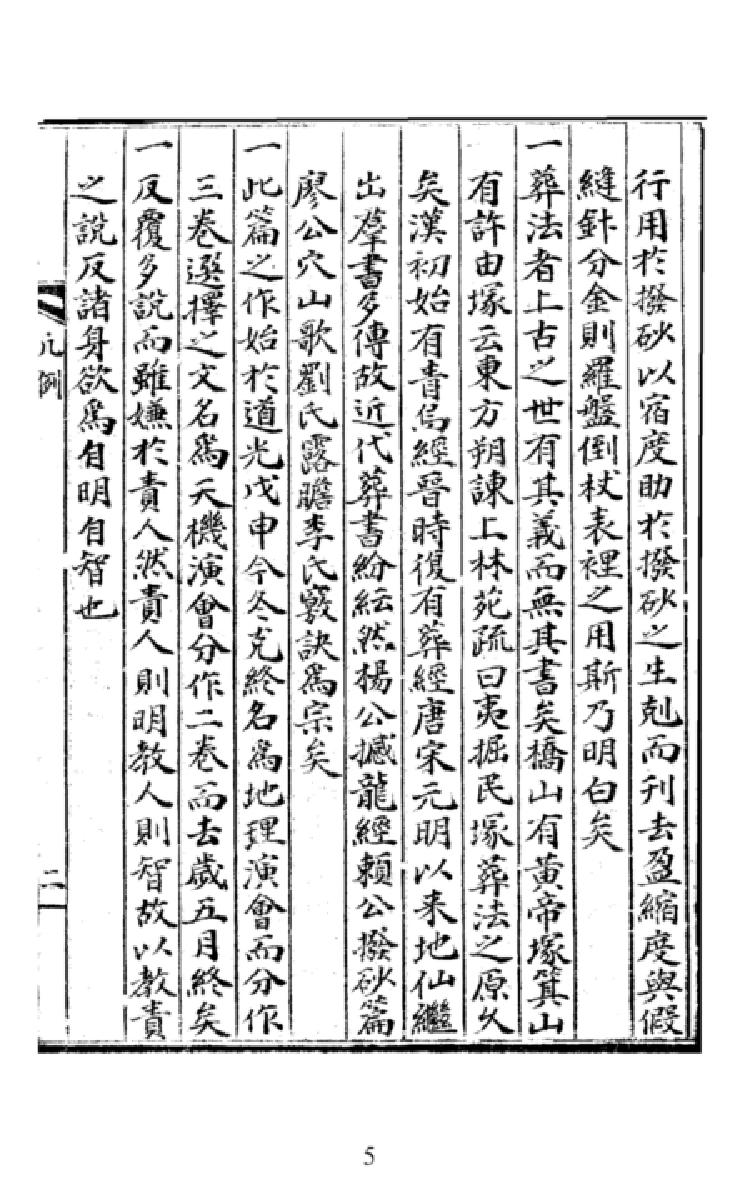 行用於撥砂以宿度助於撥砂之生剋而刊去盈縮度與假
縫針分金則羅盤倒杖表裡之用斯乃明白矣
一葬法者上古之世有其義而無其書矣橋山有黃帝塚箕山
有許由塚云東方朔諫上林苑疏曰夷掘民塚葬法之原久
矣漢初始有青烏經晉時復有葬經唐宋元明以来地仙繼
出羣書多傳故近代葬書紛紜然楊公撼龍經賴公撥砂篇
廖公穴山歌劉氏露瞻李氏竅訣爲宗矣
一此篇之作始於道光戊申今冬克終名爲地理演會而分作
三卷選擇之文名爲天機演會分作二卷而去歲五月終矣
一反覆多說而雖嫌於責人然責人則明教人則智故以教責
之說反諸身欲爲自明自智也
凡例
二
5